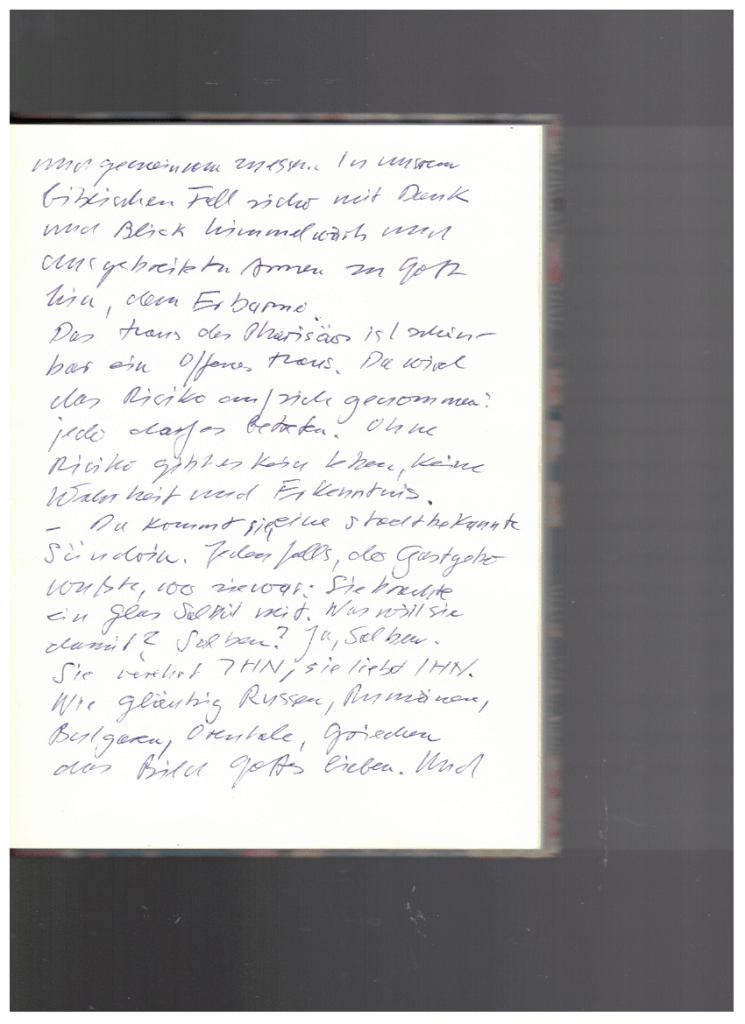 und gemeinsam essen. In unserem
biblischen Fall sicher mit Dank
und Blick himmelwärts und
ausgebreiteten Armen zu Gott
hin, dem Erbarmer.
Das Haus des Pharisäers ist schein-
bar ein offenes Haus. Da wird
das Risiko auf sich genommen:
jeder darf es betreten. Ohne
Risiko gibt es kein Leben, keine
Wahrheit und Erkenntnis.
– Da kommt sie, eine stadtbekannte
Sünderin. Jedenfalls, der Gastgeber
wußte, wo sie war: Sie brachte
ein Glas Salböl mit. Was will sie
damit? Salben? Ja, Salben.
Sie verehrt IHN, sie liebt IHN.
Wie gläubig Russen, Rumänen,
Bulgaren, Orientale, Griechen
das Bild Gottes lieben. Und